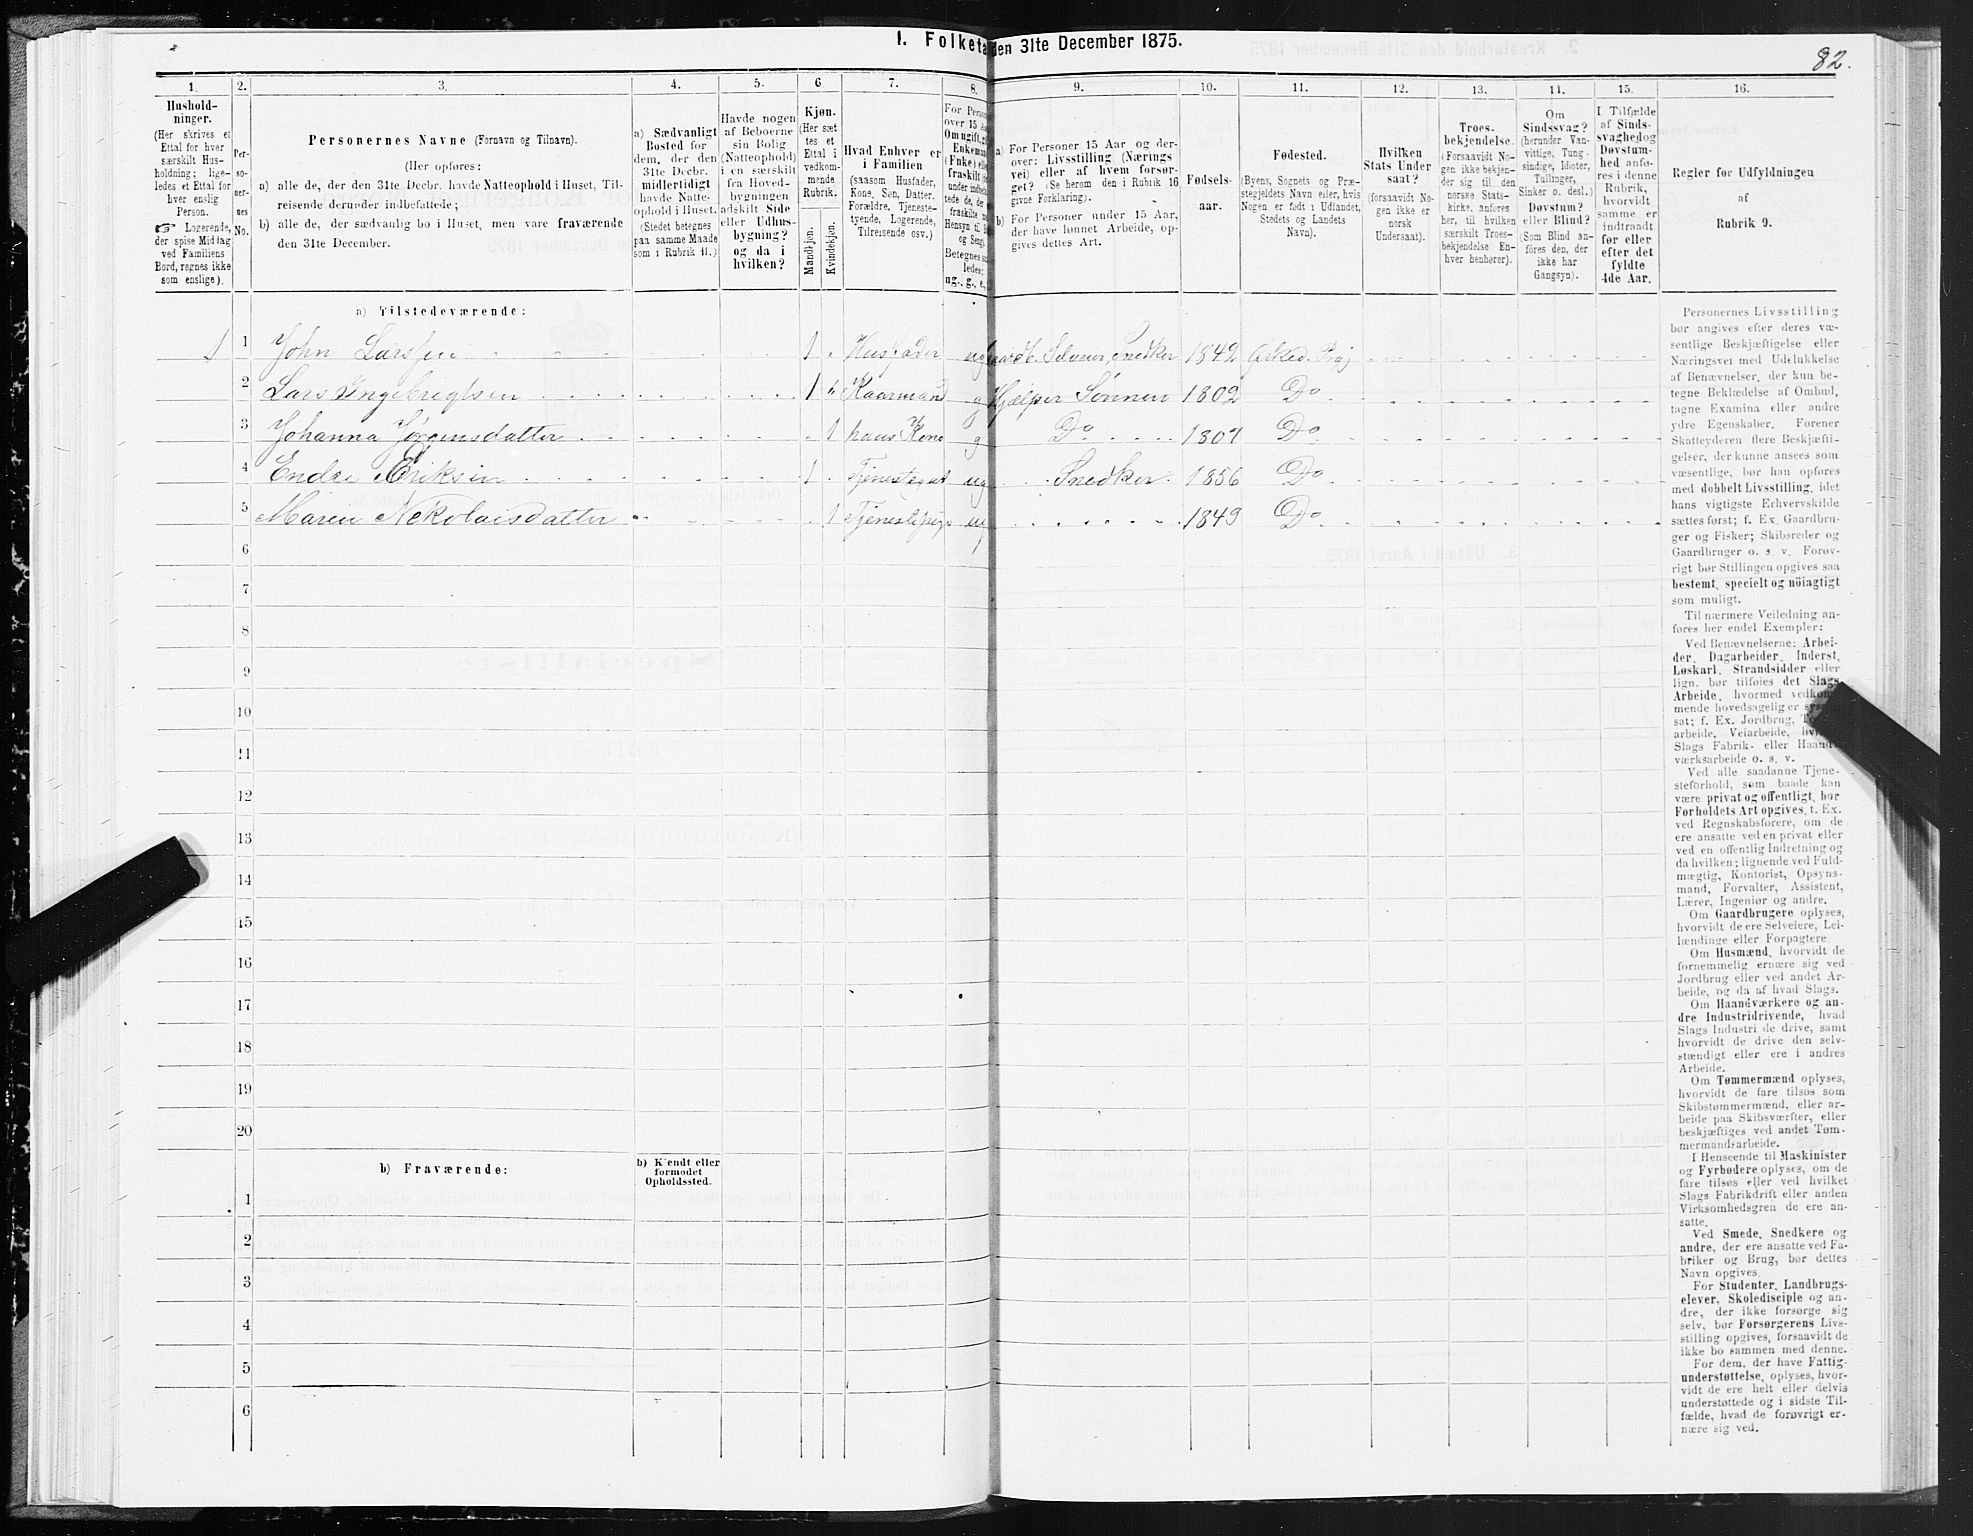 1. Folketa den 31te December 1875.
82.
1. 2. 3. 4. 5. 6 7. 8. 9. 10. 11. 12. 13. 14. 15. 16.
Hushold-
ninger.
(Her skrives et
Ettal for hver
særskilt Hus-
holdning; lige-
ledes et Ettal for
hver enslig
Person.
☞ Logerende,
der spise Middag
ved Familiens
Bord, regnes ikke
som enslige).
Per-
so-
ner-
nes
No.
Personernes Navne (Fornavn og Tilnavn).
(Her opføres:
a) alle de, der den 31te Decbr. havde Natteophold i Huset, Til-
reisende derunder indbefattede;
b) alle de, der sædvanlig bo i Huset, men vare fraværende
den 31te December.
a) Sædvanligt
Bosted for
dem, der den
31te Decbr.
midlertidigt
havde Natte-
ophold i Huset.
(Stedet betegnes
paa samme Maade
som i Rubrik 11.)
Havde nogen
af Beboerne
sin Bolig
(Natteophold)
i en særskilt
fra Hoved-
bygningen
adskilt Side
eller Udhus-
bygning?
og da i
hvilken?
Kjøn.
(Her sæt
tes et
Ettal i
vedkom-
mende
Rubrik.
Mandkjøn.
Kvindekjøn.
Hvad Enhver er
i Familien
(saasom Husfader,
Kone, Søn, Datter,
Forældre, Tjeneste-
tyende, Logerende,
Tilreisende osv.)
For Perso
over 15 A
Om ugift, g
Enkema
(Fnke) ell
fraskilt
a) For Personer 15 Aar og der-
over: Livsstilling (Nærings
vei) eller af hvem forsør-
get? (Se herom den i Rubrik 16
givne Forklaring).
b) For Personer under 15 Aar,
der have lønnet Arbeide, op-
gives dettes Art.
Fødsels-
aar.
Fødested.
(Byens, Sognets og Præ-
stegjeldets Navn eller, hvis
Nogen er født i Udlandet,
Stedets og Landets
Navn).
Hvilken
Stats Under
saat?
(forsaavidt No-
gen ikke er
norsk
Undersaat).
Troes-
bekjendelse.
(Forsaavidt No-
gen ikke bekjen-
der sig til den
norske Stats-
kirke, anføres
her, til hvilken
særskilt Troes-
bekjendelse En-
hver henhører).
Om
Sindssvag?
(herunder Van-
vittige, Tung-
sindige, Idioter,
Tullinger,
Sinker o. desl.)
Døvstum?
eller Blind?
(Som Blind an-
føres den, der
ikke har
Gangsyn).
I Tilfælde
af Sinds-
svaghed og
Døvstum-
hed anfø-
res i denne
Rubrik,
hvorvidt
samme er
indtraadt
før eller
efter det
fyldte
4de Aar.
Regler for Udfyldningen
af
Rubrik 9.
a) Tilstedeværende:
1 1 John Larssen 1 Husfader ug Selveier, Snedker 1842
2 Lars Ingebrigtsen 1 Kaarmand g Hjælper Sønnen 1802 Do
3 Johanna Jørgensdatter 1 hans Kone g Do 1801 Do
4 Endre Eriksen 1 ug Snedker 1856 Do
5 Maren Nekolaisdatter 1 ug 1849 Do
6
7
8
9
10
11
12
13
14
15
16
17
18
19
20
b) Fraværende:
b) Kjendt eller
formodet
Opholdssted.
1
2
3
4
5
6
Personernes Livsstilling
bør angives efter deres væ-
sentlige Beskjæftigelse eller
Næringsvei med Udelukkelse
af Benævnelser, der kun be-
tegne Beklædelse af Ombud,
tagne Examina eller andre
ydre Egenskaber. Forener
Skatteyderen flere Beskjæfti-
gelser, der kunne ansees som
væsentlige, bør han opføres
med dobbelt Livsstilling, idet
hans vigtigste Erhvervskilde
sættes først; f. Ex. Gaardbru-
ger og Fisker; Skibsreder og
Gaardbruger o. s. v. Forøv-
rigt bør Stillingen opgives saa
bestemt, specielt og nöiagtigt
som muligt.
Til nærmere Veiledning an-
føres her endel Exempler:
Ved Benævnelserne: Arbei-
der, Dagarbeider, Inderst,
Løskarl, Strandsidder eller
lign. bør tilføies det Slags
Arbeide, hvormed vedkom-
mende hovedsagelig er syssel-
sat; f. Ex. Jordbrug,
arbeide, Veiarbeide,
Slags Fabrik- eller Haand-
værksarbeide o. s. v.
Ved alle saadanne Tjene-
steforhold, som baade kan
være privat og offentligt, bør
Forholdets Art opgives, f. Ex.
ved Regnskabsførere, om de
ere ansatte ved en privat eller
ved en offentlig Indretning og
da hvilken; lignende ved Fuld-
mægtig, Kontorist, Opsyns-
mand, Forvalter, Assistent,
Lærer, Ingeniør og andre.
Om Gaardbrugere oplyses,
hvorvidt de ere Selveiere, Lei-
lændinge eller Forpagtere.
Om Husmænd, hvorvidt de
fornemmelig ernære sig ved
Jordbrug eller ved andet Ar-
beide, og da af hvad Slags.
Om Haandværkere og an-
dre Industridrivende, hvad
Slags Industri de drive, samt
hvorvidt de drive den selv-
stændigt eller ere i andres
Arbeide.
Om Tømmermænd oplyses,
hvorvidt de fare tilsøs som
Skibstømmermænd, eller ar-
beide paa Skibsværfter, eller
beskjæftiges ved andet Tøm-
mermandsarbeide.
I Henseende til Maskinister
og Fyrbødere oplyses, om de
fare tilsøs eller ved hvilket
Slags Fabrikdrift eller anden
Virksomhedsgren de ere an-
satte.
Ved Smede, Snedkere og
andre, der ere ansatte ved Fa-
briker og Brug, bør dettes
Navn opgives.
For Studenter, Landbrugs-
elever, Skoledisciple og an-
dre, der ikke forsørge sig
selv, bør Forsørgerens Livs-
stilling opgives, forsaavidt de
ikke bo sammen med denne.
For dem, der have Fattig-
understøttelse, oplyses, hvor-
vidt de ere helt eller delvis
understøttede og i sidste Til-
fælde, hvad de forøvrigt er-
nære sig ved.